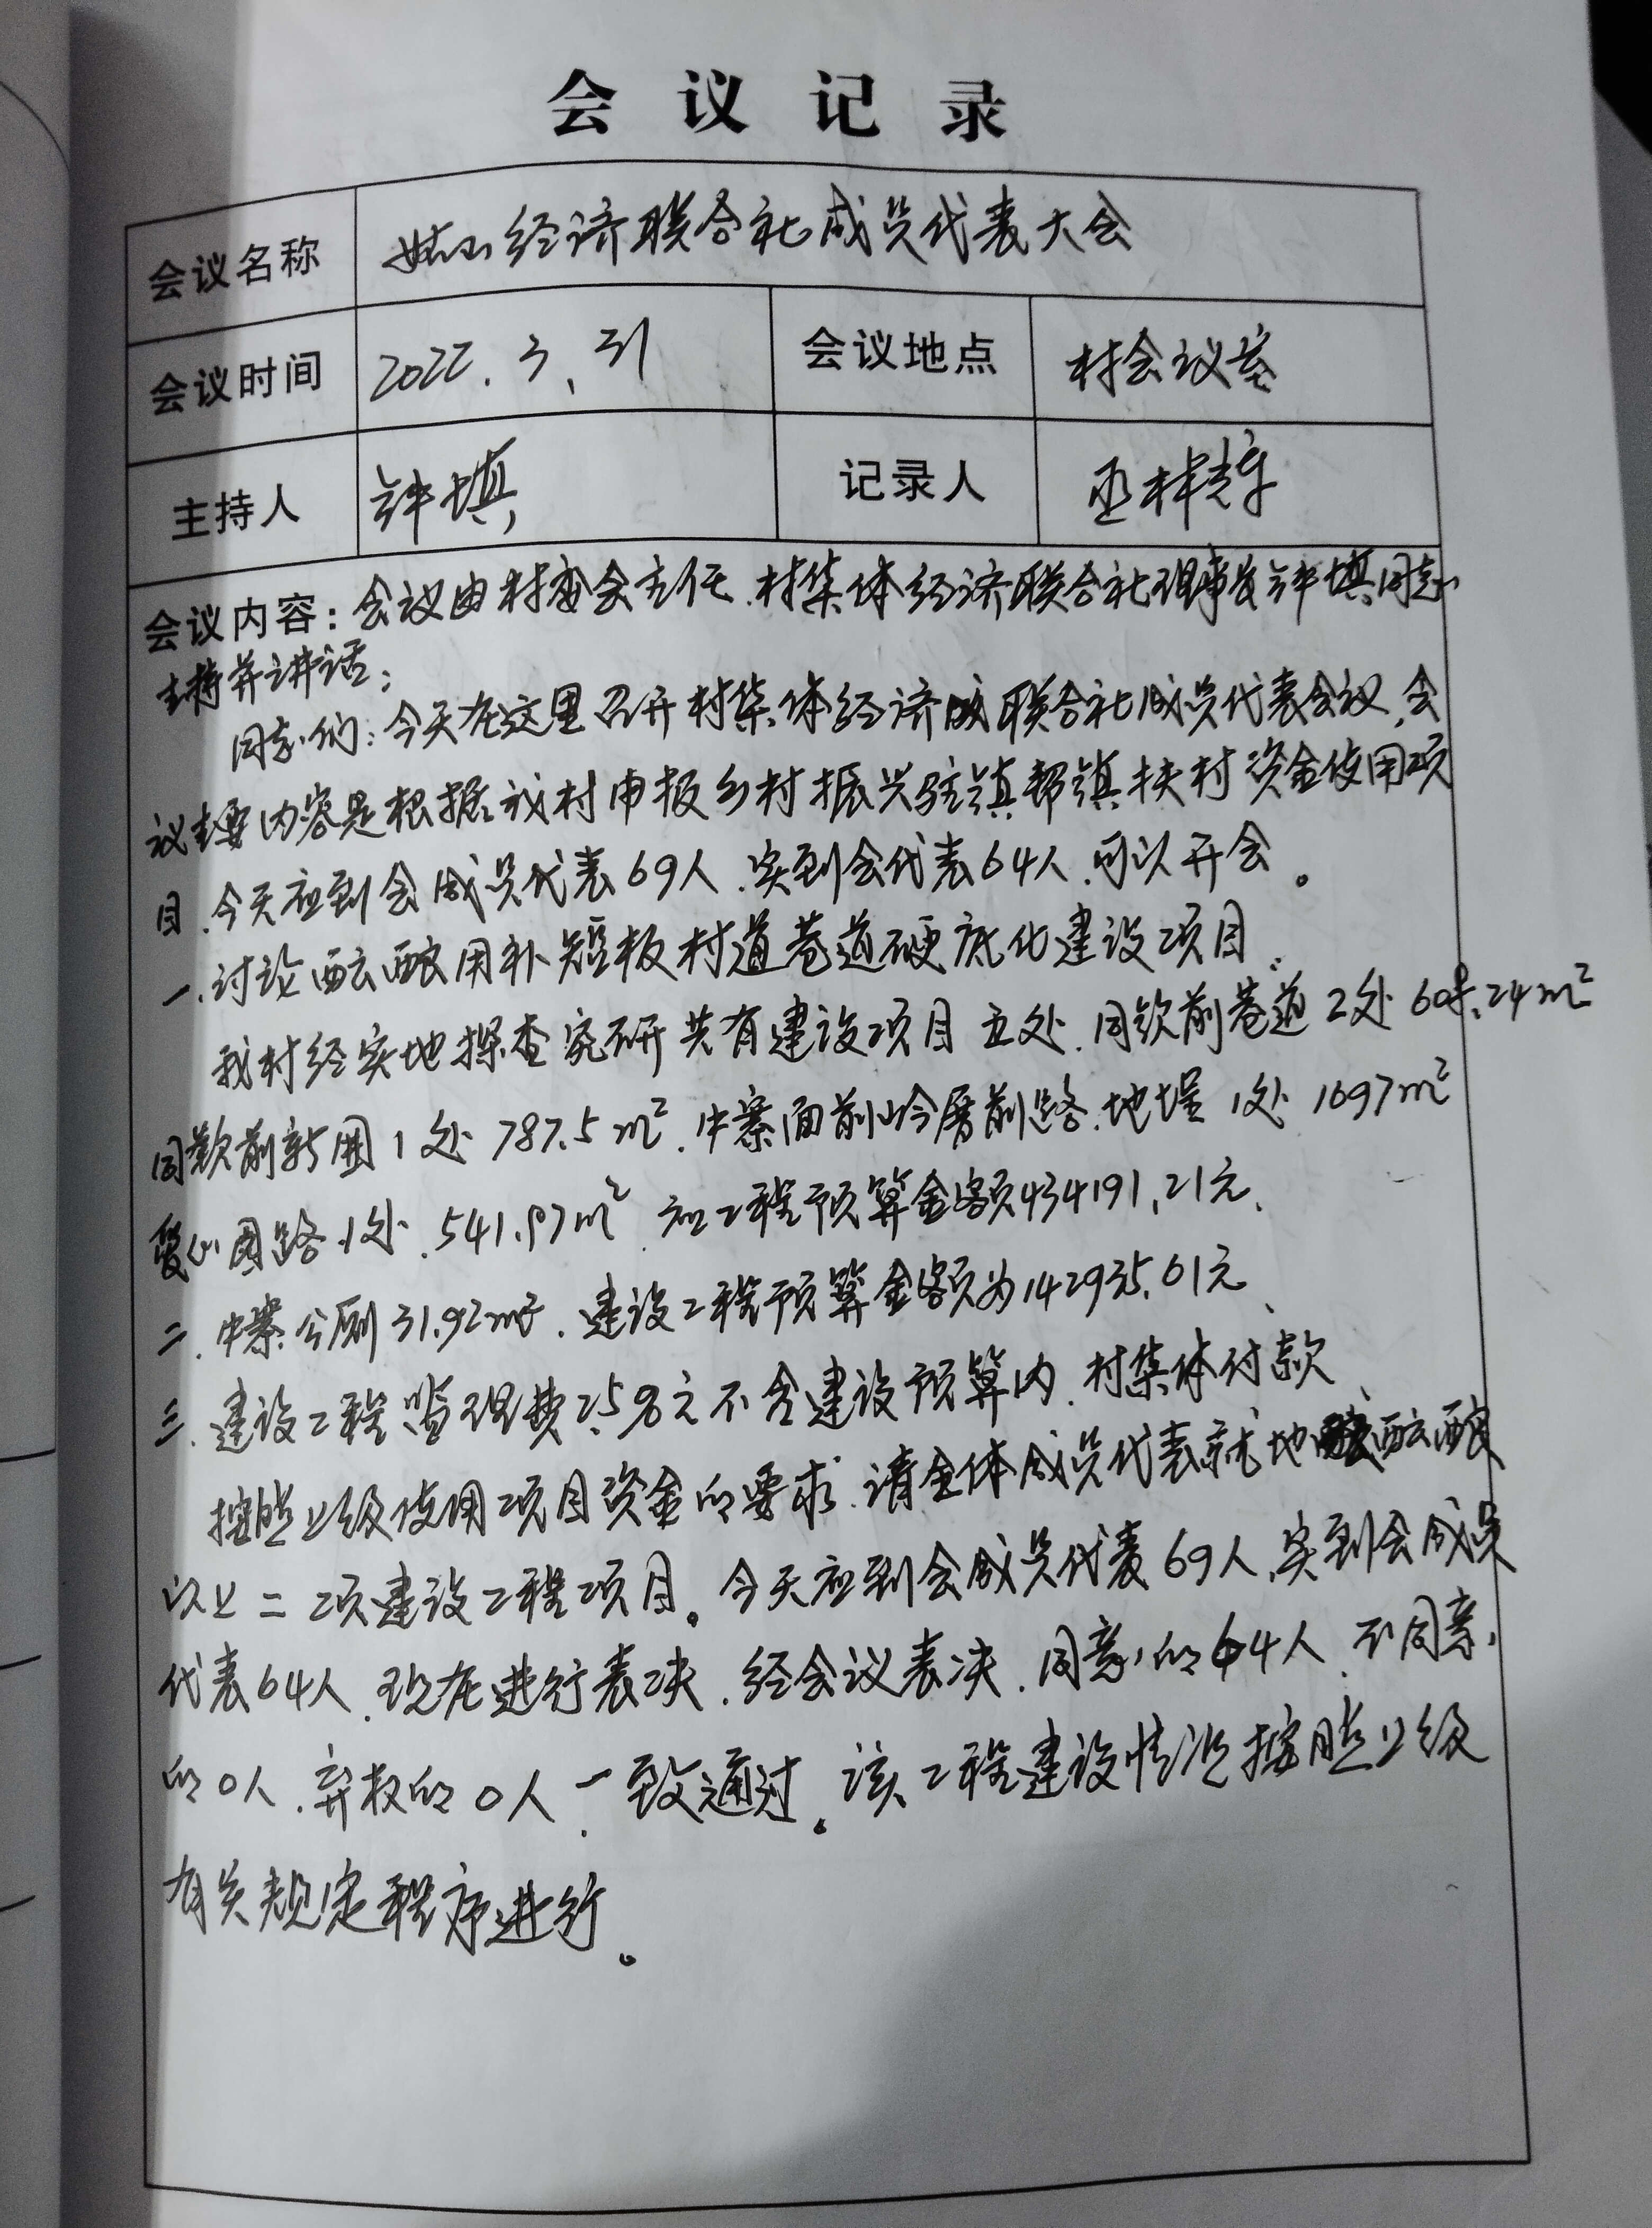 会议记录
会议名称 姑山经济联合社成员代表大会
会议时间 2022.3.31 会议地点 村会议室
主持人 许填 记录人 林
会议内容：会议由村委会主任、村集体经济联合社理事长许填同志
主持并讲话：
同志们：今天在这里召开村集体经济联合社成员代表会议，会
议主要内容是根据我村申报乡村振兴驻镇帮镇扶村资金使用项
目、今天应到会成员代表69人、实到会代表64人、可以开会。
一、讨论酝酿用补短板村道巷道硬底化建设项目：
我村经实地探查究研共有建设项目五处、同钦前巷道2处 608.24m²
同欽前新围1处787.5m²、中寨面前山
前路、地埕1处 1697m²
围路1处、541.97m²、工程预算金额434191.21元、
二、中寨公厕31.92m²、建设工程预算金额为142935.61元、
三、建设工程监理费2.5%元不含建设预算内、村集体付款、
按照上级使用项目资金的要求、请全体成员代表就地酝酿
以上二项建设工程项目。今天应到会成员代表69人、实到会成员
代表64人、现在进行表决、经会议表决、同意的64人、不同意
的0人、弃权的0人、一致通过。该工程建设情况按照上级
有关规定程序进行。